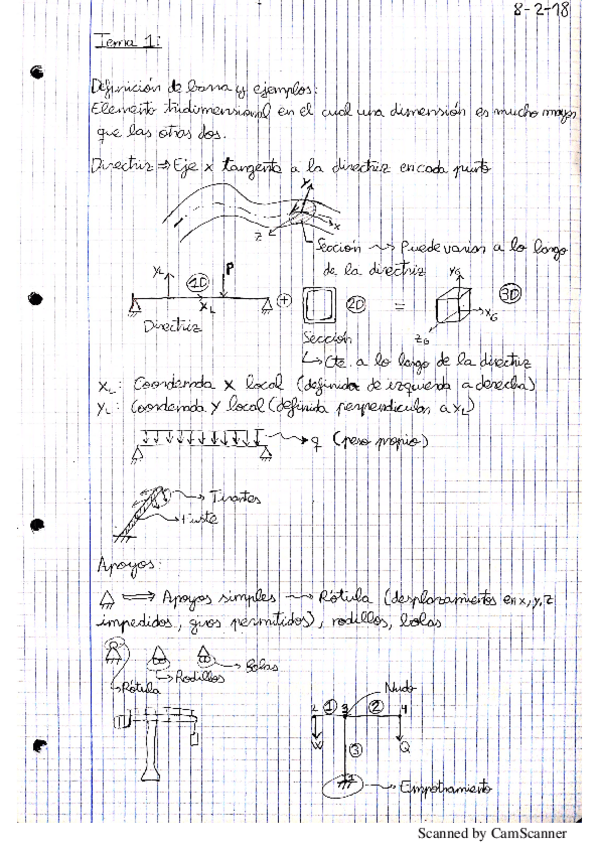 8-2-18
Tema 1:
Definición de barra y ejemplos:
Elemento tridimensional en el cual una dimensión es mucho mayor
que las otras dos.
Directriz ⇒ Eje x tangente a la directriz en cada punto
y
x
z
Sección ~> Puede variar a lo largo
de la directriz
yL
1D
P
xL
Directriz
+
2D
=
yG
3D
xG
zG
Sección
↳ Cte. a lo largo de la directriz
xL: Coordenada x local (definida de izquierda a derecha)
yL: Coordenada y local (definida perpendicular a xL)
q (peso propio)
Tirantes
Fuste
Apoyos:
⇒ Apoyos simples ~> Rótula (desplazamientos en x, y, z
impedidos, giros permitidos), rodillos, bolas
Bolas
Rodillos
Rótula
Nudo
2 1 3 2 4
W
Q
3
1
Empotramiento
Scanned by CamScanner